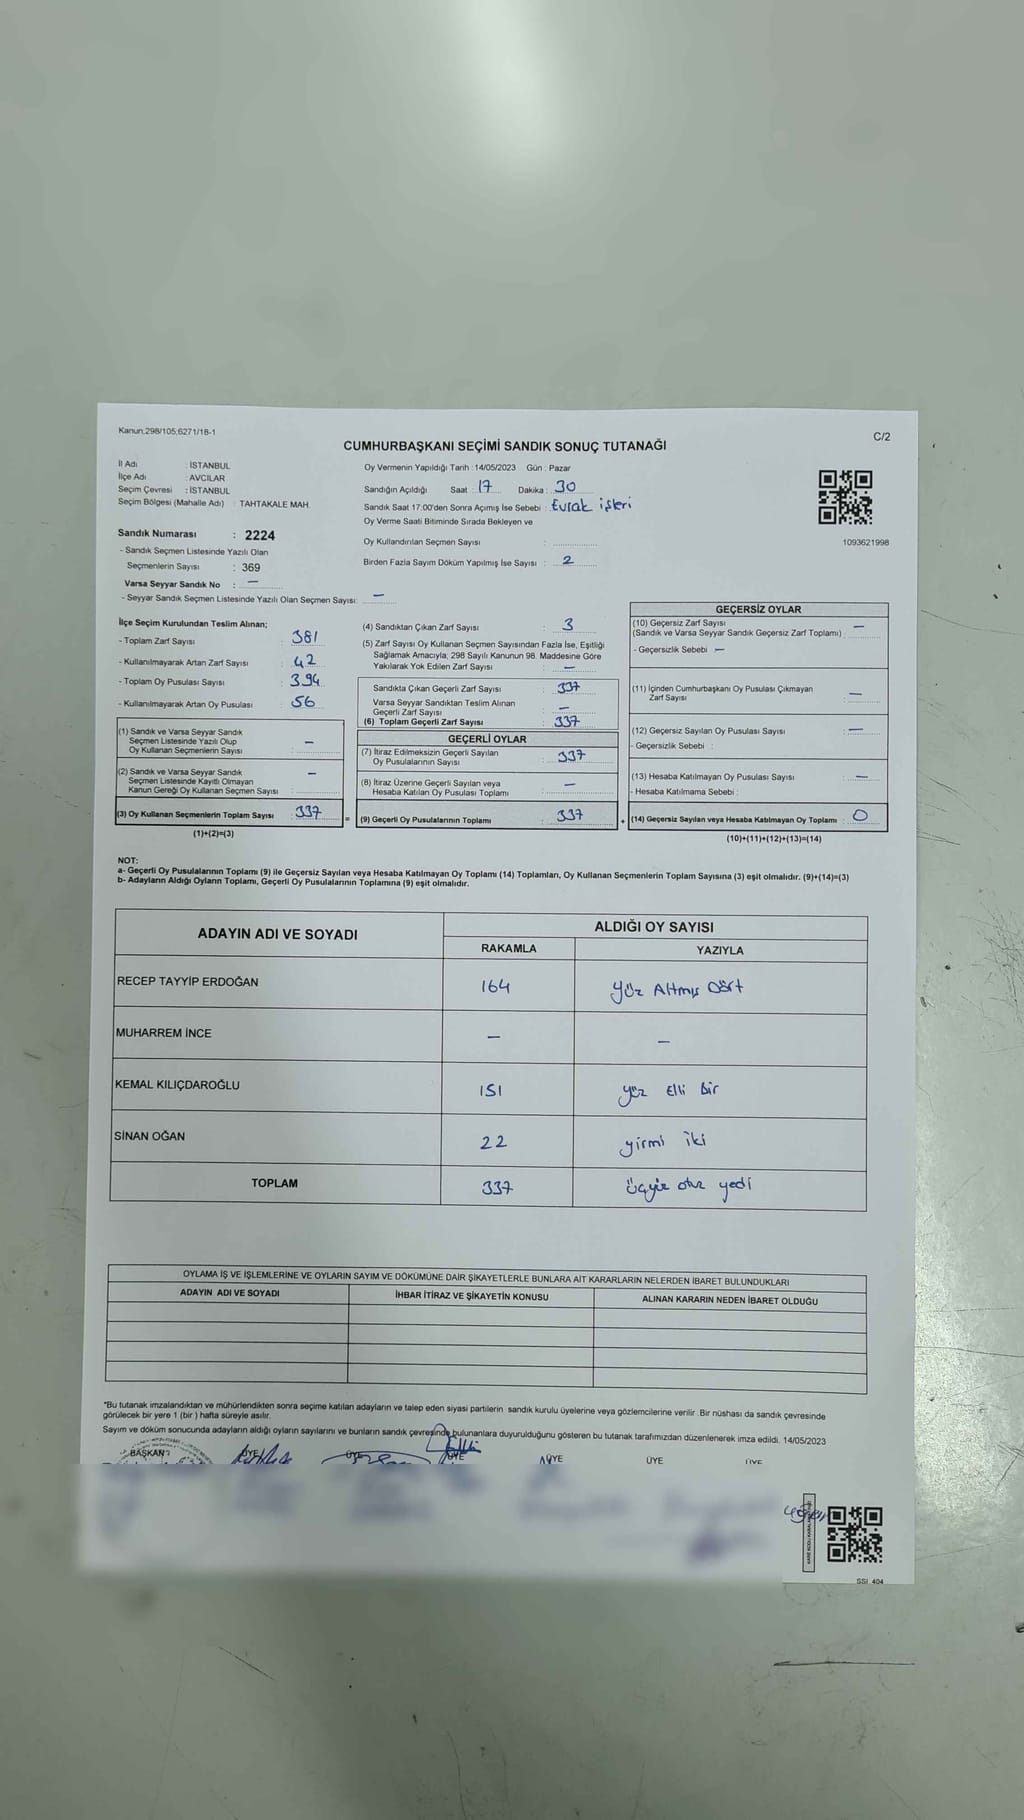 Kanun;298/105;6271/18-1
C/2
CUMHURBAŞKANI SEÇİMİ SANDIK SONUÇ TUTANAĞI
İl Adı : İSTANBUL
İlçe Adı : AVCILAR
Seçim Çevresi : İSTANBUL
Seçim Bölgesi (Mahalle Adı) : TAHTAKALE MAH.
Oy Vermenin Yapıldığı Tarih : 14/05/2023 Gün : Pazar
Sandığın Açıldığı Saat : 17 Dakika : 30
Sandık Saat 17:00'den Sonra Açımış İse Sebebi : Evrak işleri
Oy Verme Saati Bitiminde Sırada Bekleyen ve
Oy Kullandırılan Seçmen Sayısı :
Birden Fazla Sayım Döküm Yapılmış İse Sayısı : 2
1093621998
Sandık Numarası : 2224
- Sandık Seçmen Listesinde Yazılı Olan
Seçmenlerin Sayısı : 369
Varsa Seyyar Sandık No : —
- Seyyar Sandık Seçmen Listesinde Yazılı Olan Seçmen Sayısı: —
İlçe Seçim Kurulundan Teslim Alınan;
- Toplam Zarf Sayısı : 381
- Kullanılmayarak Artan Zarf Sayısı : 42
- Toplam Oy Pusulası Sayısı : 394
- Kullanılmayarak Artan Oy Pusulası : 56
(1) Sandık ve Varsa Seyyar Sandık
Seçmen Listesinde Yazılı Olup
Oy Kullanan Seçmenlerin Sayısı : —
(2) Sandık ve Varsa Seyyar Sandık
Seçmen Listesinde Kayıtlı Olmayan
Kanun Gereği Oy Kullanan Seçmen Sayısı : —
(3) Oy Kullanan Seçmenlerin Toplam Sayısı : 337
(1)+(2)=(3)
=
(4) Sandıktan Çıkan Zarf Sayısı : 3
(5) Zarf Sayısı Oy Kullanan Seçmen Sayısından Fazla İse, Eşitliği
Sağlamak Amacıyla, 298 Sayılı Kanunun 98. Maddesine Göre
Yakılarak Yok Edilen Zarf Sayısı : —
Sandıkta Çıkan Geçerli Zarf Sayısı : 337
Varsa Seyyar Sandıktan Teslim Alınan
Geçerli Zarf Sayısı : —
(6) Toplam Geçerli Zarf Sayısı : 337
GEÇERLİ OYLAR
(7) İtiraz Edilmeksizin Geçerli Sayılan
Oy Pusulalarının Sayısı : 337
(8) İtiraz Üzerine Geçerli Sayılan veya
Hesaba Katılan Oy Pusulası Toplamı : —
(9) Geçerli Oy Pusulalarının Toplamı : 337
+
GEÇERSİZ OYLAR
(10) Geçersiz Zarf Sayısı
(Sandık ve Varsa Seyyar Sandık Geçersiz Zarf Toplamı) : —
- Geçersizlik Sebebi : —
(11) İçinden Cumhurbaşkanı Oy Pusulası Çıkmayan
Zarf Sayısı : —
(12) Geçersiz Sayılan Oy Pusulası Sayısı : —
- Geçersizlik Sebebi :
(13) Hesaba Katılmayan Oy Pusulası Sayısı : —
- Hesaba Katılmama Sebebi :
(14) Geçersiz Sayılan veya Hesaba Katılmayan Oy Toplamı : 0
(10)+(11)+(12)+(13)=(14)
NOT:
a- Geçerli Oy Pusulalarının Toplamı (9) ile Geçersiz Sayılan veya Hesaba Katılmayan Oy Toplamı (14) Toplamları, Oy Kullanan Seçmenlerin Toplam Sayısına (3) eşit olmalıdır. (9)+(14)=(3)
b- Adayların Aldığı Oyların Toplamı, Geçerli Oy Pusulalarının Toplamına (9) eşit olmalıdır.
ADAYIN ADI VE SOYADI
ALDIĞI OY SAYISI
RAKAMLA YAZIYLA
RECEP TAYYİP ERDOĞAN 164 Yüz Altmış Dört
MUHARREM İNCE — —
KEMAL KILIÇDAROĞLU 151 yüz Elli bir
SİNAN OĞAN 22 yirmi iki
TOPLAM 337 üçyüz otuz yedi
OYLAMA İŞ VE İŞLEMLERİNE VE OYLARIN SAYIM VE DÖKÜMÜNE DAİR ŞİKAYETLERLE BUNLARA AİT KARARLARIN NELERDEN İBARET BULUNDUKLARI
ADAYIN ADI VE SOYADI İHBAR İTİRAZ VE ŞİKAYETİN KONUSU ALINAN KARARIN NEDEN İBARET OLDUĞU
*Bu tutanak imzalandıktan ve mühürlendikten sonra seçime katılan adayların ve talep eden siyasi partilerin sandık kurulu üyelerine veya gözlemcilerine verilir. Bir nüshası da sandık çevresinde
görülecek bir yere 1 (bir ) hafta süreyle asılır.
Sayım ve döküm sonucunda adayların aldığı oyların sayılarını ve bunların sandık çevresinde bulunanlara duyurulduğunu gösteren bu tutanak tarafımızdan düzenlenerek imza edildi. 14/05/2023
BAŞKAN ÜYE ÜYE ÜYE ÜYE ÜYE ÜYE
SSI_404